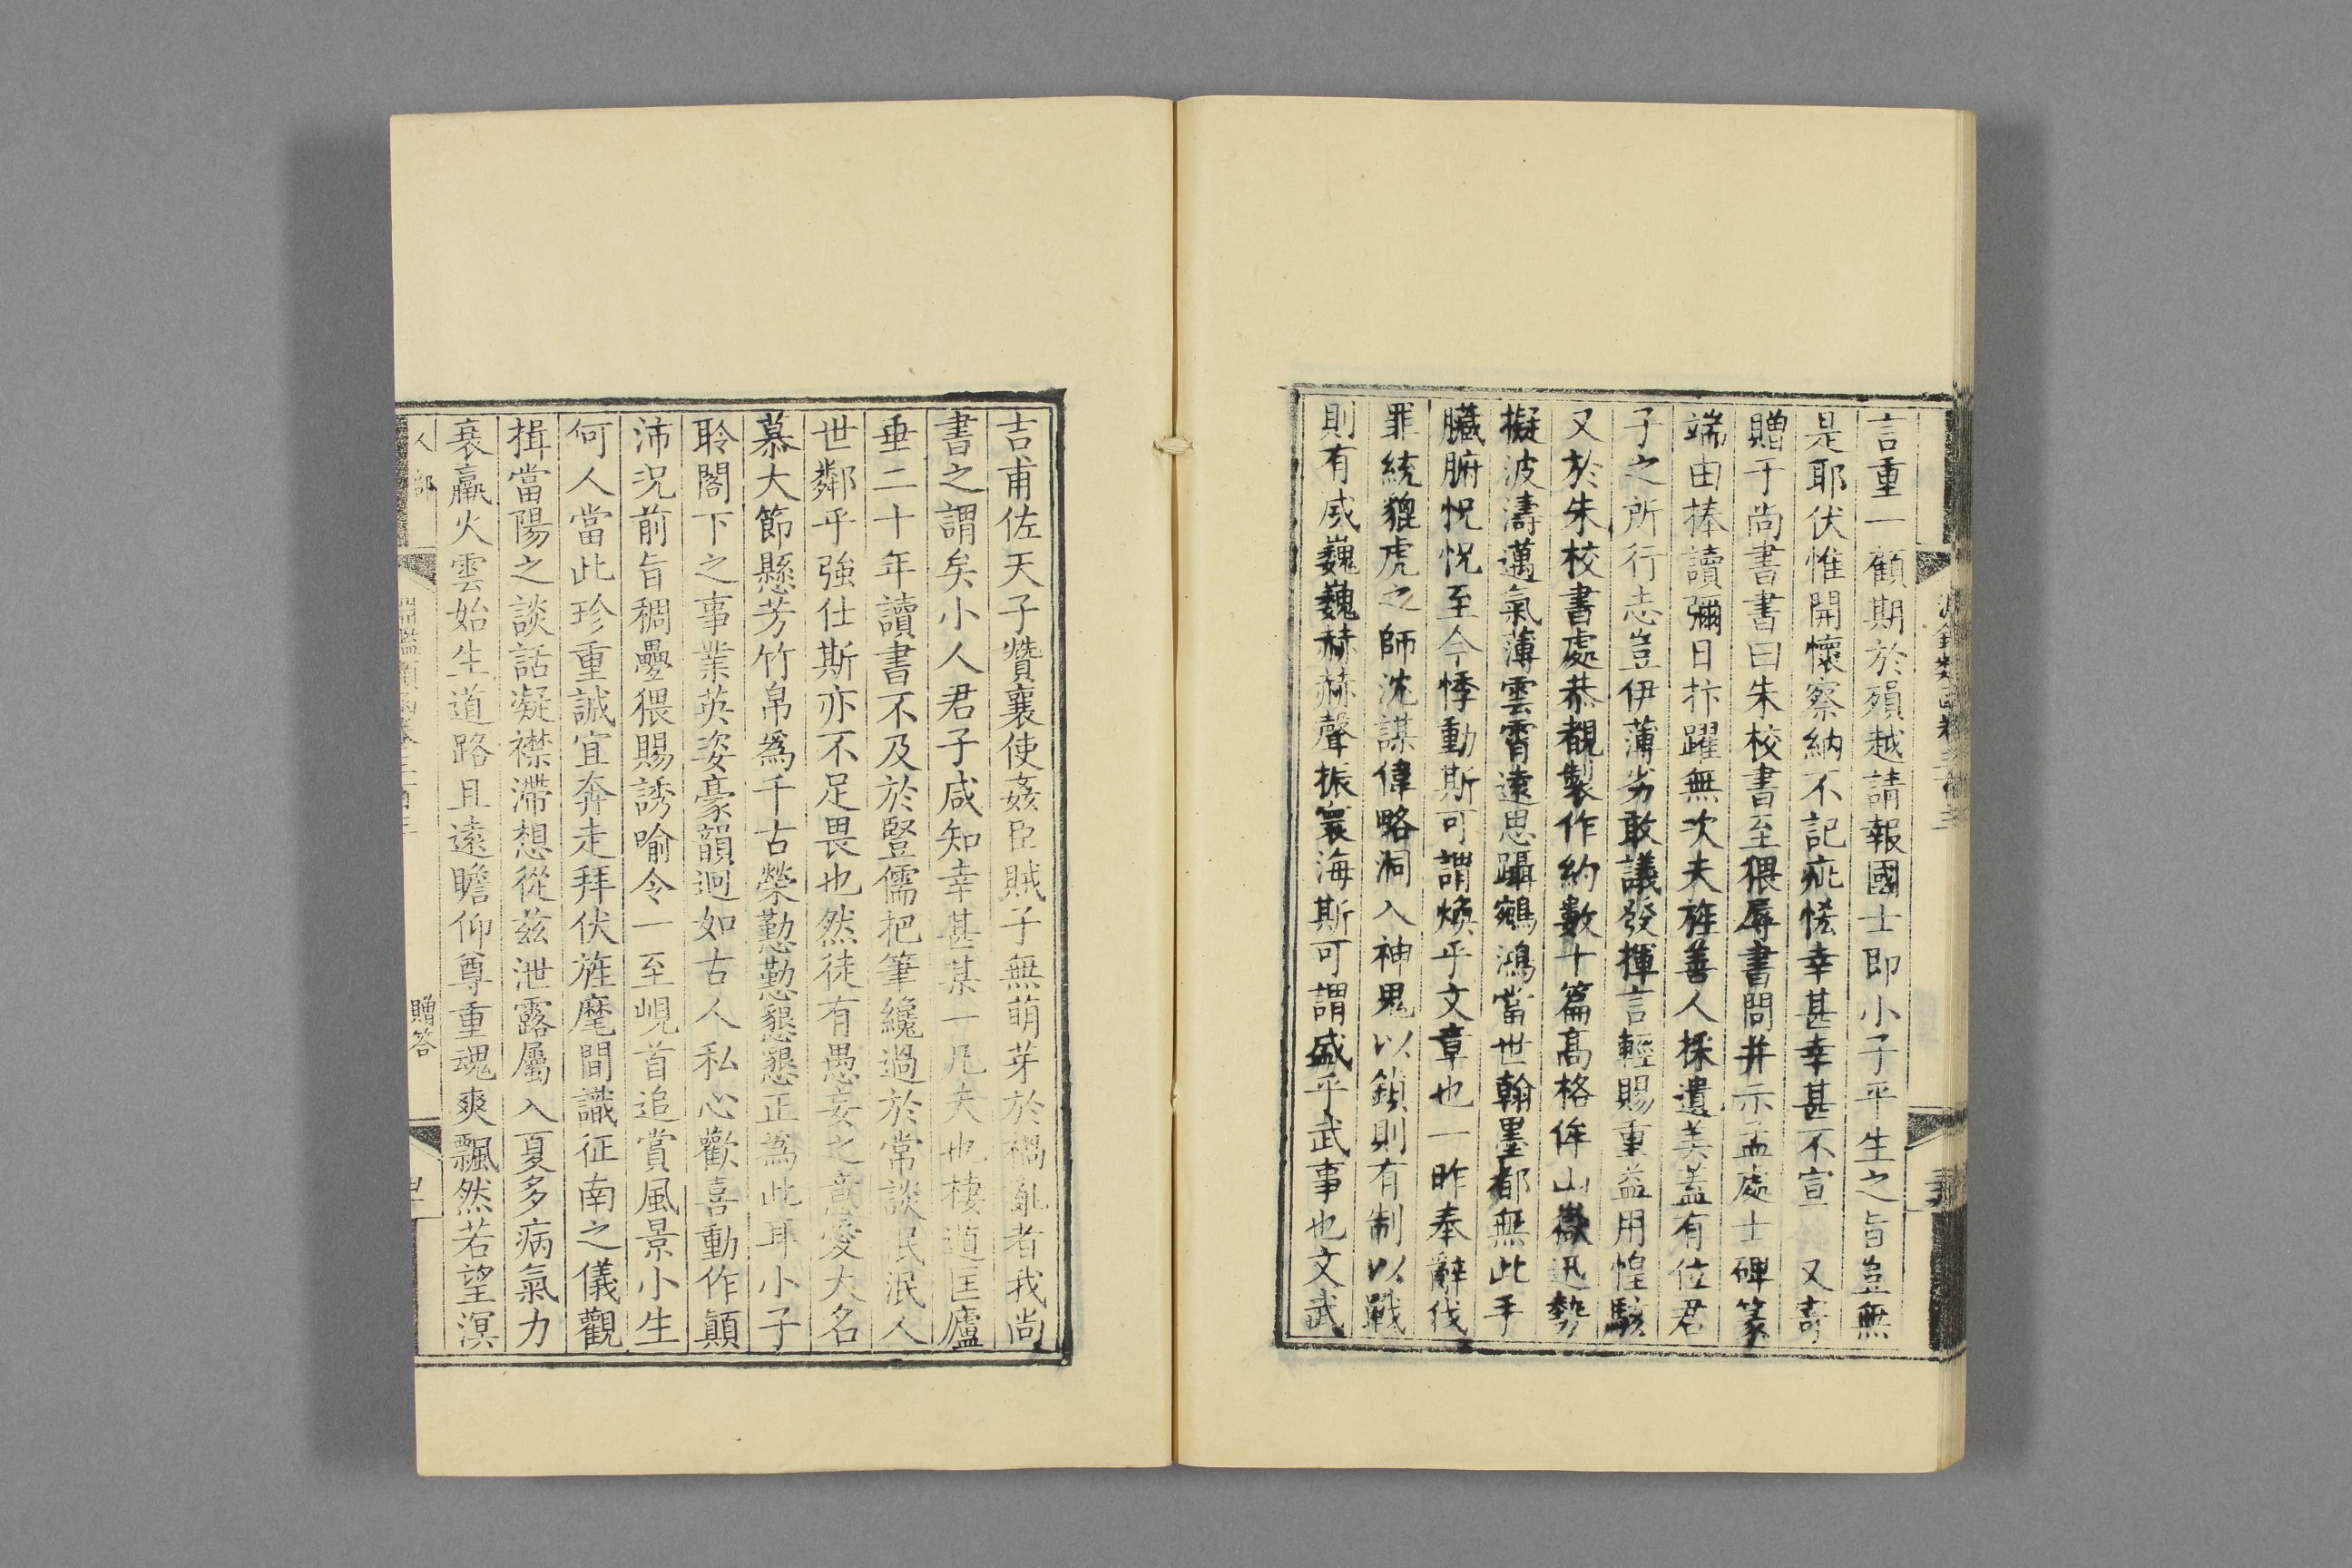 言重一顧期於殞越請報國士即小子平生之旨豈無
是耶伏惟開懷察納不記疵恡幸甚幸甚不宣　又寄
贈于尚書書曰朱校書至猥辱書問并示孟處士碑篆
端由捧讀彌日抃躍無次夫旌善人採遺美蓋有位君
子之所行志豈伊薄劣敢議發揮言輕賜重益用惶駭
又於朱校書處恭覩製作約數十篇高格侔山嶽迅勢
擬波濤邁氣薄雲霄遠思躡鵷鴻當世翰墨都無此手
臟腑怳怳至今悸動斯可謂煥乎文章也一昨奉辭伐
罪統貔虎之師沈謀偉略洞入神鬼以鎮則有制以戰
則有威巍巍赫赫聲振寰海斯可謂盛乎武事也文武
吉甫佐天子贊襄使姦臣賊子無萌芽於禍亂者我尚
書之謂矣小人君子咸知幸甚某一凡夫也棲遁匡廬
垂二十年讀書不及於豎儒把筆纔過於常談泯泯人
世鄰乎強仕斯亦不足畏也然徒有愚妄之意愛大名
慕大節懸芳竹帛爲千古榮勤勤懇懇正為此耳小子
聆閣下之事業英姿豪韻迥如古人私心歡喜動作顛
沛況前旨稠疊猥賜誘喻令一至峴首追賞風景小生
何人當此珍重誠宜奔走拜伏旌麾間識征南之儀觀
揖當陽之談話凝襟滯想從兹泄露屬入夏多病氣力
衰羸火雲始生道路且遠瞻仰尊重魂爽飄然若望溟
人部
淵鑑類函卷三百三
贈答